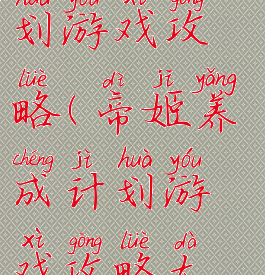 huà yóu xì gōng
划游戏攻
lüè dì jī yǎng
略(帝姬养
chéng jì huà yóu
成计划游
xì gōng lüè dà
戏攻略大